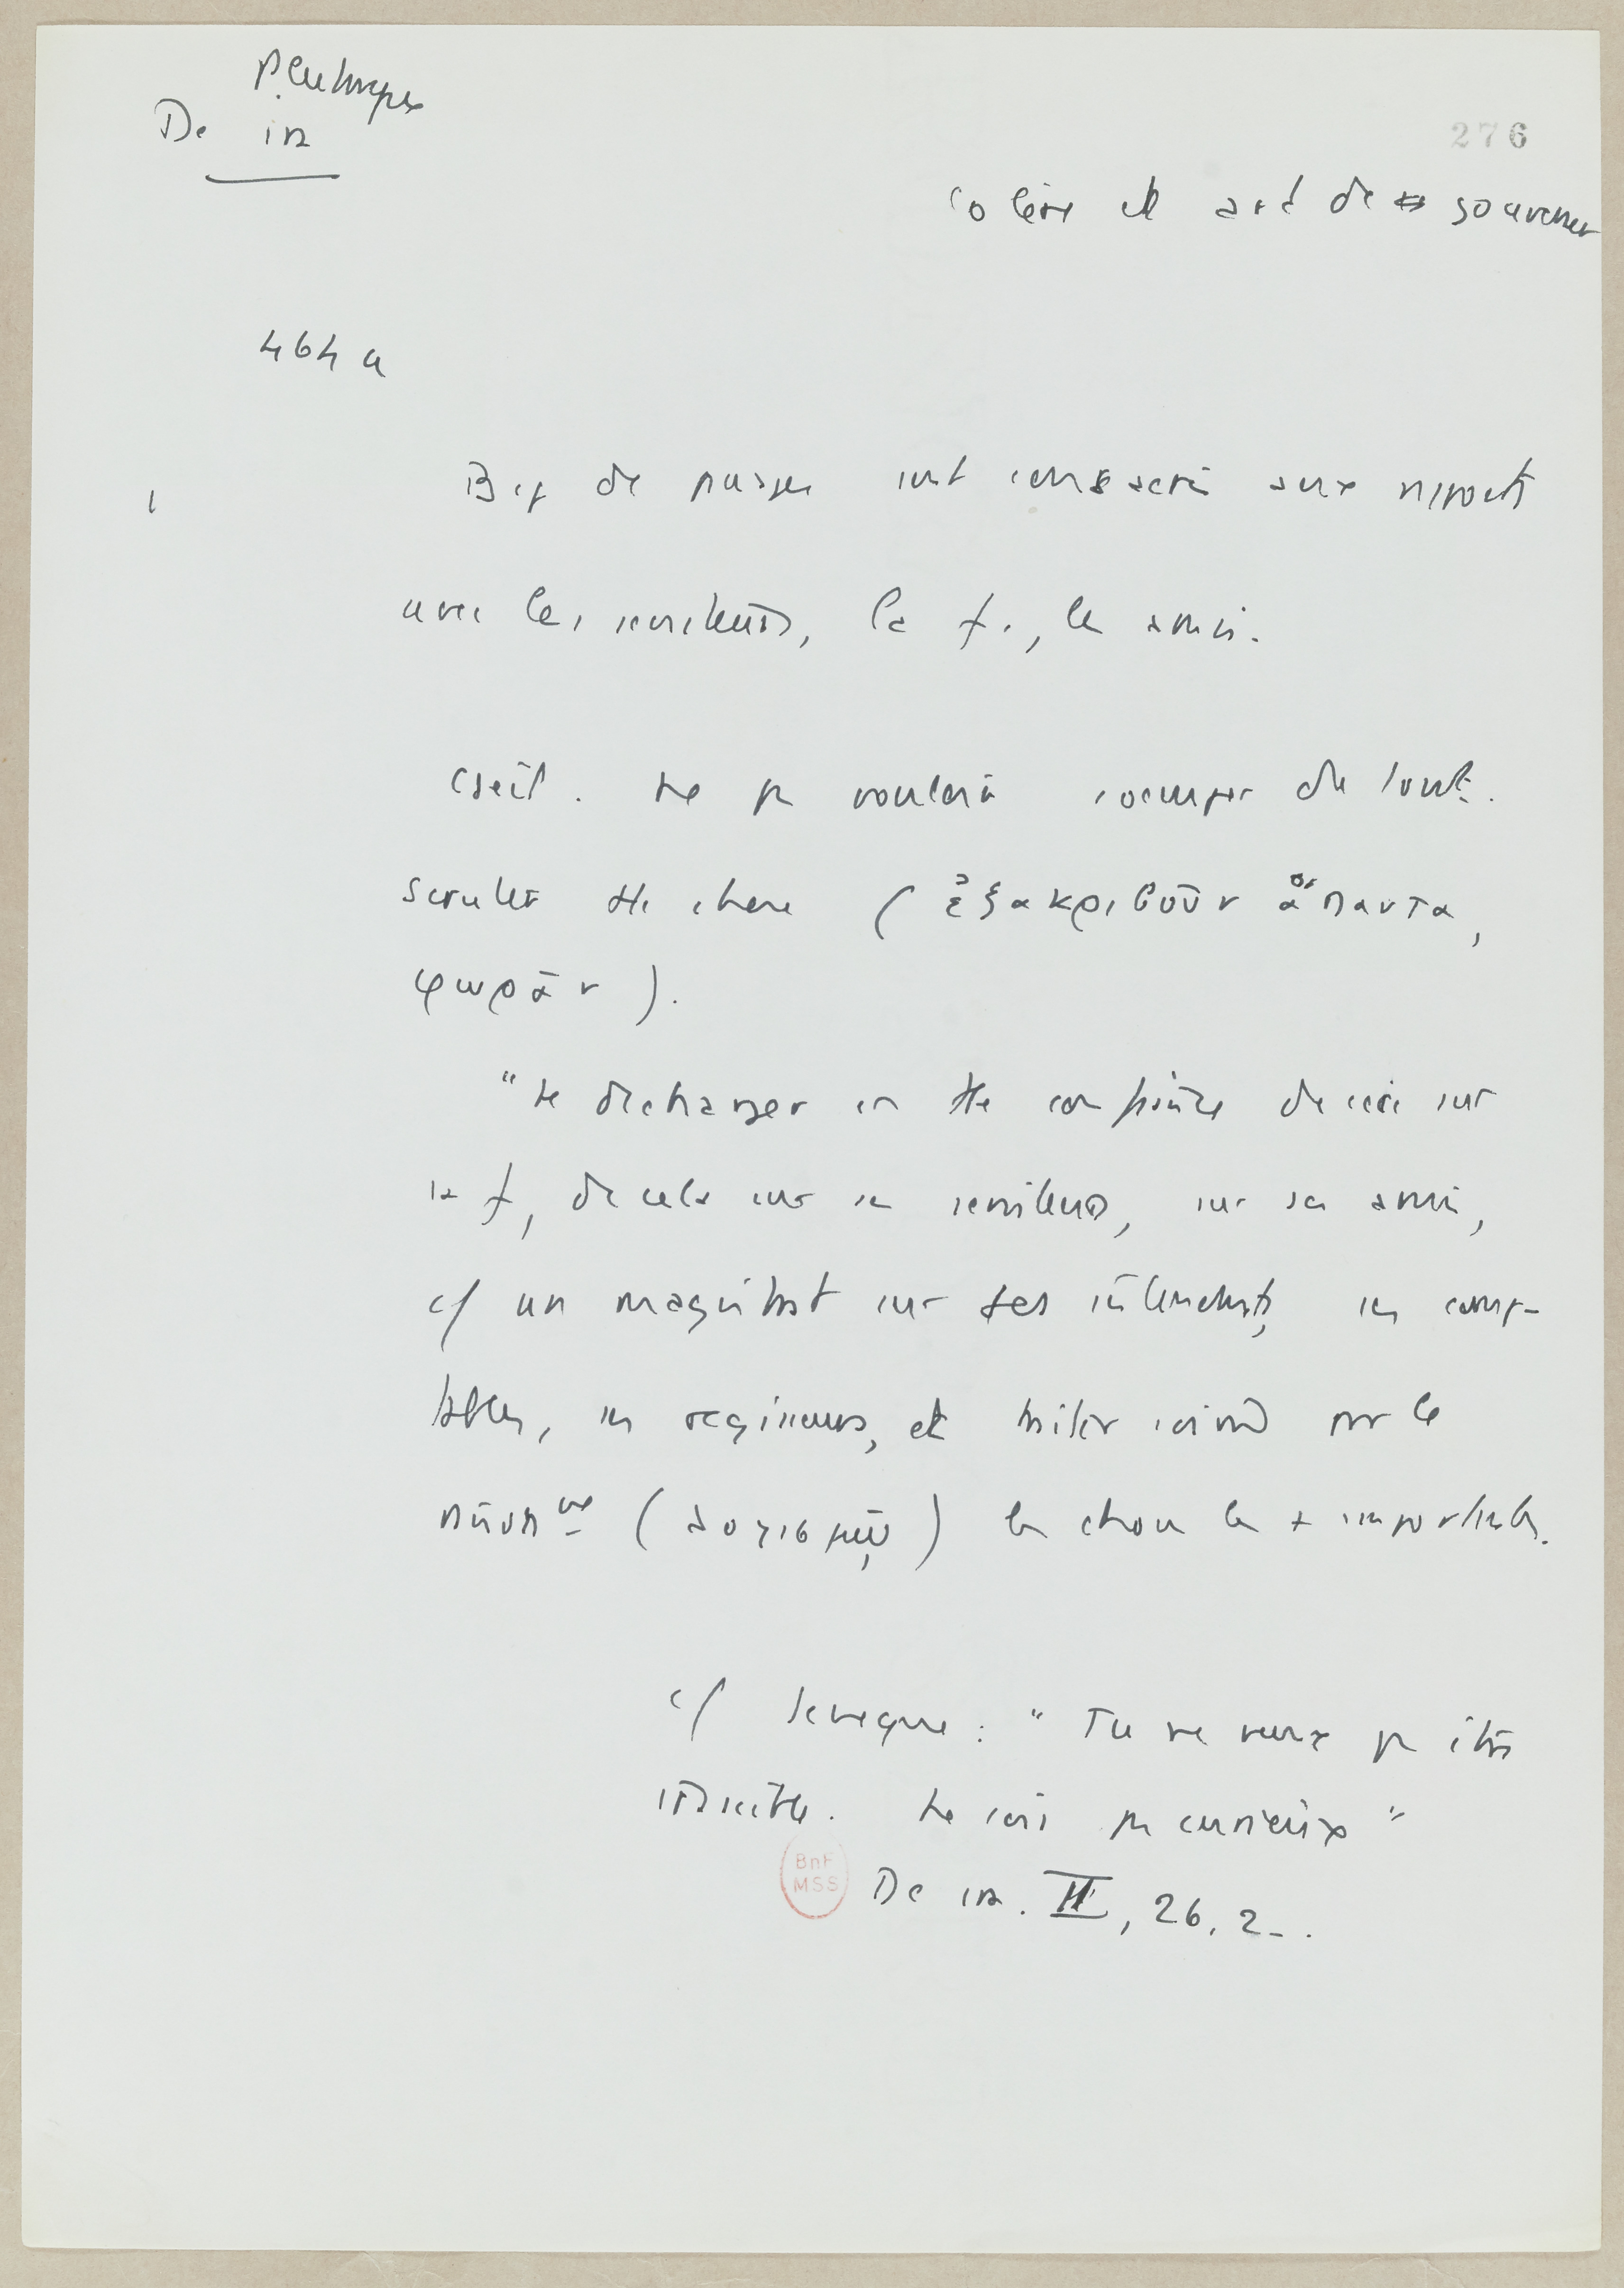 Plutarque
De ira
276
Colère et art de gouverner
464 a
Bcp de passages sont consacrés aux rapports
avec les serviteurs, la f., les amis.
Cseil. Ne pas vouloir s'occuper de tout.
Scruter tte chose ( ἐξακριβοῦν ἅπαντα,
φωρᾶν ).
"se décharger en tte confiance de ceci sur
sa f, de cela sur ses serviteurs, sur ses amis,
c/ un magistrat sur des intendants, des comp-
tables, des régisseurs, et traiter soi-même par le
raisonnt (λογισμῷ) les choses les + importantes.
c/ Sénèque : "Tu ne veux pas être
irascible. Ne sois pas curieux"
BnF
MSS
De ira. III, 26. 2-.